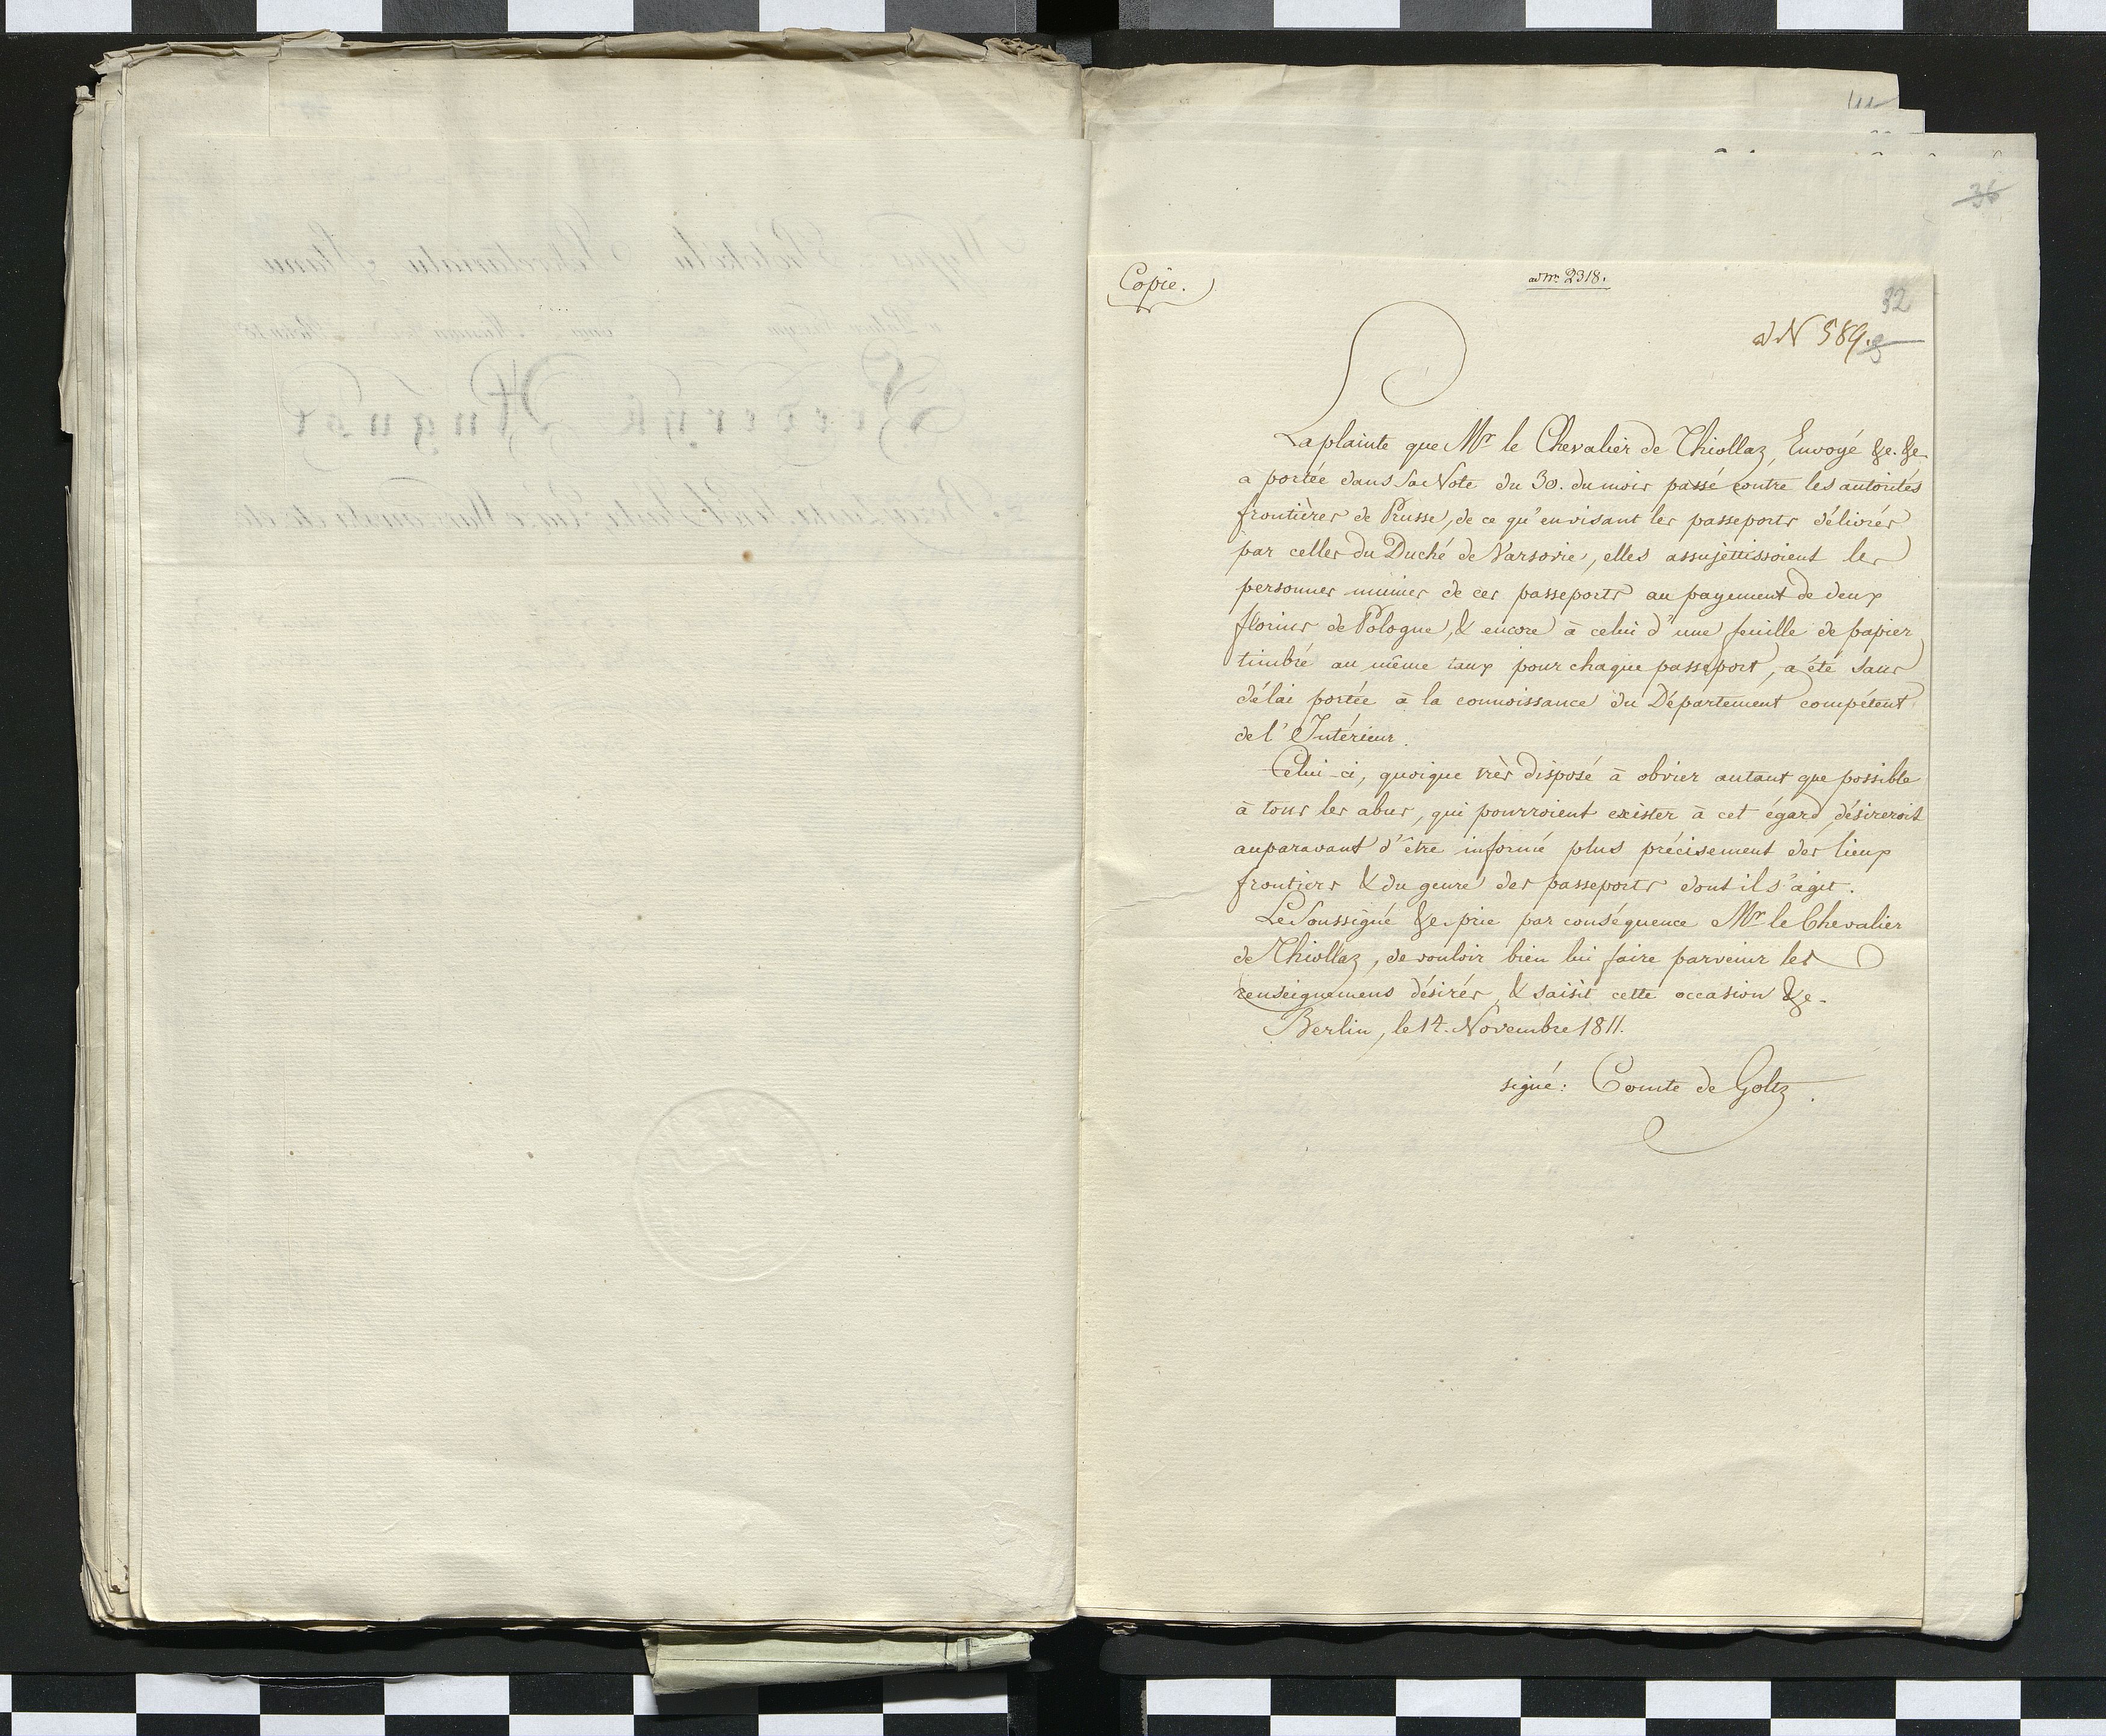 36
Copie.
ad Nr. 2318.
32
ad N 589.
La plainte que Mr le Chevalier de Thiollaz, Envoyé &c. &c
a portée dans sa Note du 30. du mois passé contre les autorités
frontières de Prusse, de ce qu'en visant les passeports délivrés
par celles du Duché de Varsovie, elles assujettissoient les
personnes munies de ces passeports au payement de deux
florins de Pologne, & encore à celui d'une feuille de papier
timbré au même taux pour chaque passeport, a été sans
délai portée à la connoissance du Département compétent
de l'Intérieur.
Celui-ci, quoique très disposé à obvier autant que possible
à tous les abus, qui pourroient exister à cet égard, désireroit
auparavant d'être informé plus précisement des lieux
frontiers & du genre des passeports dont il s'agit.
Le Soussigné &c. prie par conséquence Mr le Chevalier
de Thiollaz, de vouloir bien lui faire parvenir les
renseignemens désirés, & saisit cette occasion &c.
Berlin, le 14. Novembre 1811.
signé: Comte de Goltz.